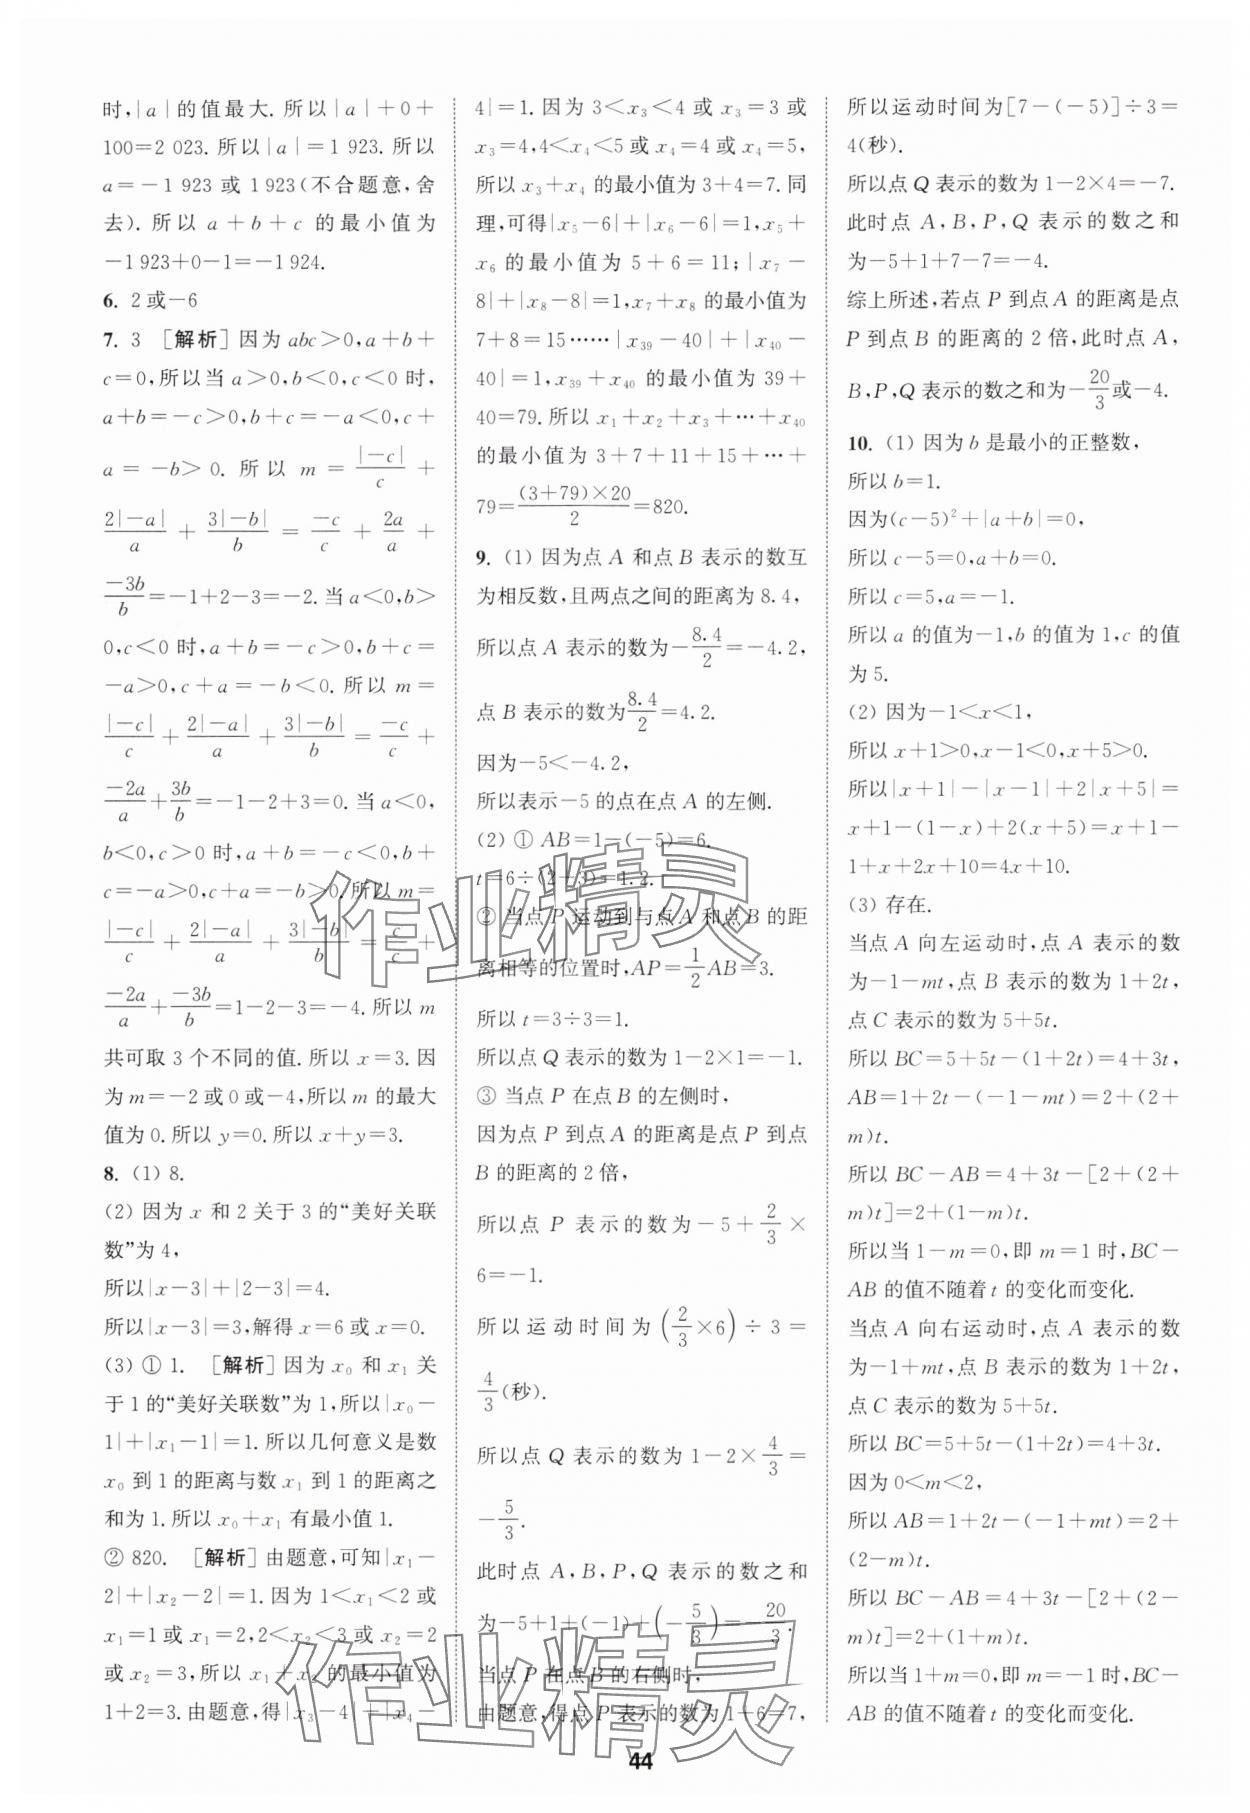 时,|a|的值最大. 所以|a|+0+
100=2 023. 所以|a|=1 923. 所以
a=-1 923 或 1 923(不合题意,舍
去). 所以 a+b+c 的最小值为
-1 923+0-1=-1 924.
6. 2或-6
7. 3 [解析]因为 abc>0,a+b+
c=0,所以当 a>0,b<0,c<0 时,
a+b=-c>0,b+c=-a<0,c+
a=-b>0. 所以 m=|-c|/c+
2|-a|/a+3|-b|/b=-c/c+2a/a+
-3b/b=-1+2-3=-2. 当 a<0,b>
0,c<0 时,a+b=-c>0,b+c=
-a>0,c+a=-b<0. 所以 m=
|-c|/c+2|-a|/a+3|-b|/b=-c/c+
-2a/a+3b/b=-1-2+3=0. 当 a<0,
b<0,c>0 时,a+b=-c<0,b+
c=-a>0,c+a=-b>0. 所以 m=
|-c|/c+2|-a|/a+3|-b|/b=c/c+
-2a/a+-3b/b=1-2-3=-4. 所以 m
共可取 3 个不同的值. 所以 x=3. 因
为 m=-2 或 0 或-4,所以 m 的最大
值为 0. 所以 y=0. 所以 x+y=3.
8. (1) 8.
(2) 因为 x 和 2 关于 3 的“美好关联
数”为 4,
所以|x-3|+|2-3|=4.
所以|x-3|=3,解得 x=6 或 x=0.
(3) ① 1. [解析]因为 x₀ 和 x₁ 关
于 1 的“美好关联数”为 1,所以|x₀-
1|+|x₁-1|=1. 所以几何意义是数
x₀ 到 1 的距离与数 x₁ 到 1 的距离之
和为 1. 所以 x₀+x₁ 有最小值 1.
② 820. [解析]由题意,可知|x₁-
2|+|x₂-2|=1. 因为 1<x₁<2 或
x₁=1 或 x₁=2,2<x₂<3 或 x₂=2
或 x₂=3,所以 x₁+x₂ 的最小值为
1+2=3. 由题意,得|x₃-4|+|x₄-
4|=1. 因为 3<x₃<4 或 x₃=3 或
x₃=4,4<x₄<5 或 x₄=4 或 x₄=5,
所以 x₃+x₄ 的最小值为 3+4=7. 同
理,可得|x₅-6|+|x₆-6|=1,x₅+
x₆ 的最小值为 5+6=11;|x₇-
8|+|x₈-8|=1,x₇+x₈ 的最小值为
7+8=15……|x₃₉-40|+|x₄₀-
40|=1,x₃₉+x₄₀ 的最小值为 39+
40=79. 所以 x₁+x₂+x₃+…+x₄₀
的最小值为 3+7+11+15+…+
79=(3+79)×20/2=820.
9. (1) 因为点 A 和点 B 表示的数互
为相反数,且两点之间的距离为 8.4,
所以点 A 表示的数为-8.4/2=-4.2,
点 B 表示的数为8.4/2=4.2.
因为-5<-4.2,
所以表示-5 的点在点 A 的左侧.
(2) ① AB=1-(-5)=6.
t=6÷(2+3)=1.2.
② 当点 P 运动到与点 A 和点 B 的距
离相等的位置时,AP=1/2AB=3.
所以 t=3÷3=1.
所以点 Q 表示的数为 1-2×1=-1.
③ 当点 P 在点 B 的左侧时,
因为点 P 到点 A 的距离是点 P 到点
B 的距离的 2 倍,
所以点 P 表示的数为-5+2/3×
6=-1.
所以运动时间为(2/3×6)÷3=
4/3(秒).
所以点 Q 表示的数为 1-2×4/3=
-5/3.
此时点 A,B,P,Q 表示的数之和
为-5+1+(-1)+(-5/3)=-20/3.
当点 P 在点 B 的右侧时,
由题意,得点 P 表示的数为 1+6=7,
所以运动时间为[7-(-5)]÷3=
4(秒).
所以点 Q 表示的数为 1-2×4=-7.
此时点 A,B,P,Q 表示的数之和
为-5+1+7-7=-4.
综上所述,若点 P 到点 A 的距离是点
P 到点 B 的距离的 2 倍,此时点 A,
B,P,Q 表示的数之和为-20/3或-4.
10. (1) 因为 b 是最小的正整数,
所以 b=1.
因为(c-5)²+|a+b|=0,
所以 c-5=0,a+b=0.
所以 c=5,a=-1.
所以 a 的值为-1,b 的值为 1,c 的值
为 5.
(2) 因为-1<x<1,
所以 x+1>0,x-1<0,x+5>0.
所以|x+1|-|x-1|+2|x+5|=
x+1-(1-x)+2(x+5)=x+1-
1+x+2x+10=4x+10.
(3) 存在.
当点 A 向左运动时,点 A 表示的数
为-1-mt,点 B 表示的数为 1+2t,
点 C 表示的数为 5+5t.
所以 BC=5+5t-(1+2t)=4+3t,
AB=1+2t-(-1-mt)=2+(2+
m)t.
所以 BC-AB=4+3t-[2+(2+
m)t]=2+(1-m)t.
所以当 1-m=0,即 m=1 时,BC-
AB 的值不随着 t 的变化而变化.
当点 A 向右运动时,点 A 表示的数
为-1+mt,点 B 表示的数为 1+2t,
点 C 表示的数为 5+5t.
所以 BC=5+5t-(1+2t)=4+3t.
因为 0<m<2,
所以 AB=1+2t-(-1+mt)=2+
(2-m)t.
所以 BC-AB=4+3t-[2+(2-
m)t]=2+(1+m)t.
所以当 1+m=0,即 m=-1 时,BC-
AB 的值不随着 t 的变化而变化.
作业精灵
作业精灵
44